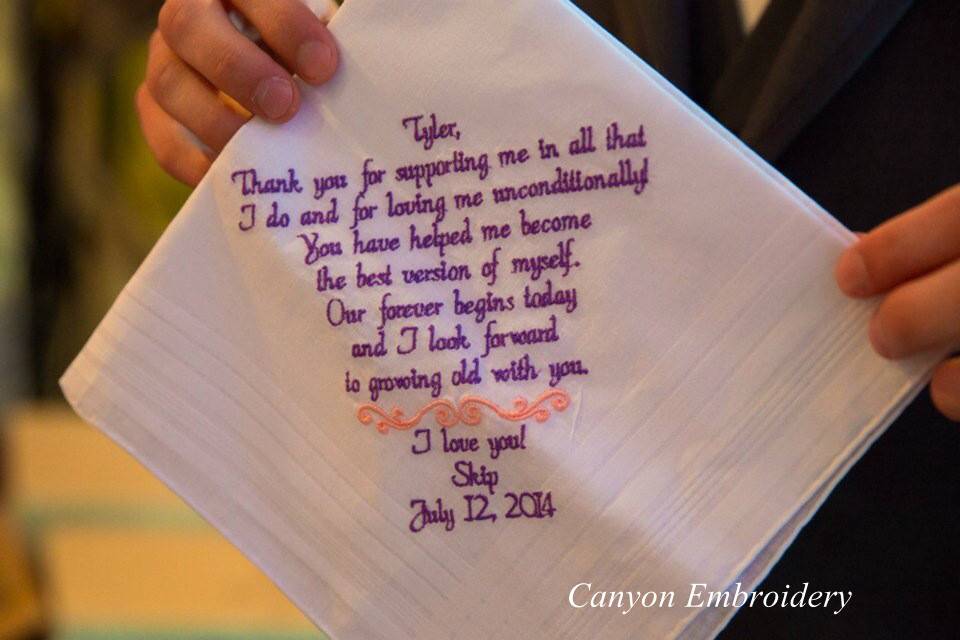 Tyler,
Thank you for supporting me in all that
I do and for loving me unconditionally!
You have helped me become
the best version of myself.
Our forever begins today
and I look forward
to growing old with you.
I love you!
Skip
July 12, 2014
Canyon Embroidery